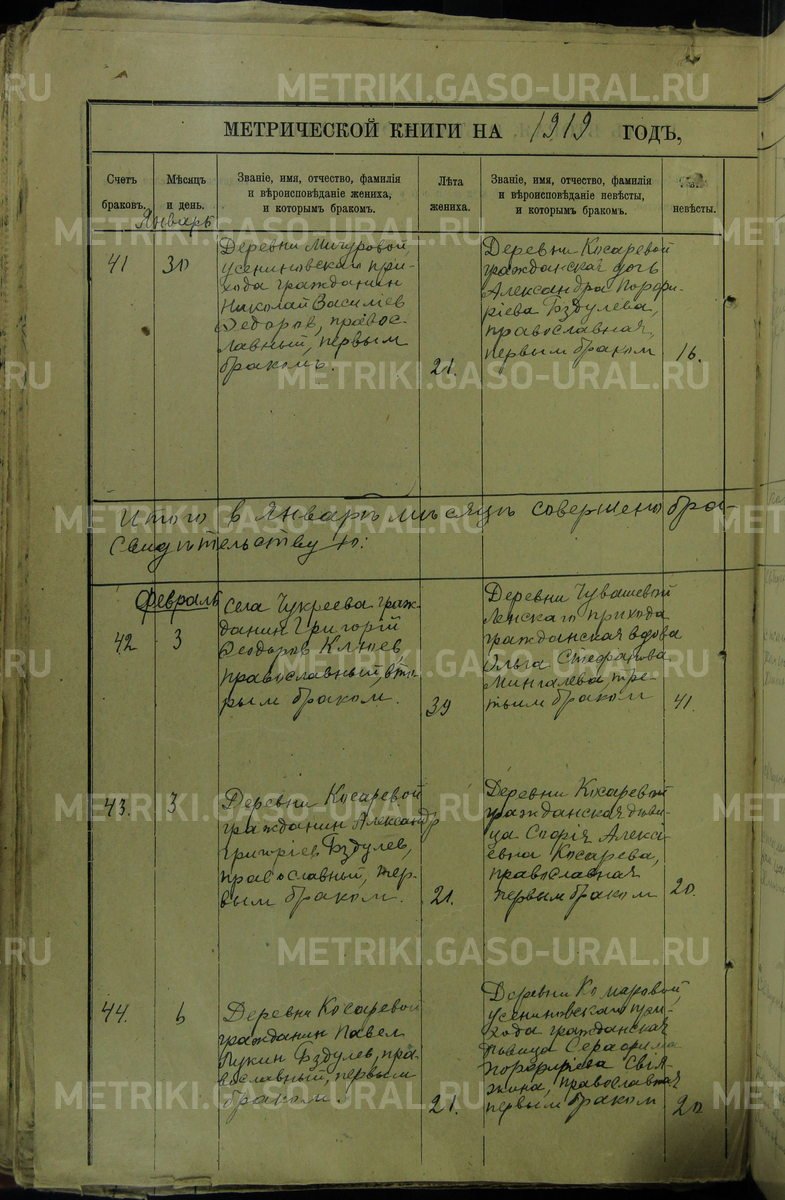 МЕТРИЧЕСКОЙ КНИГИ НА 1919 ГОДЪ,
Счетъ
браковъ.
Мѣсяцъ
и день.
Званіе, имя, отчество, фамилія
и вѣроисповѣданіе жениха,
и которымъ бракомъ.
Лѣта
жениха.
Званіе, имя, отчество, фамилія
и вѣроисповѣданіе невѣсты,
и которымъ бракомъ.
невѣсты.
Январь
41
30
Деревни Мичуровой,
усениновскаго при-
хода гражданин
Николай Василіев
Федоров, правос-
лавный, первым
бракомъ.
21.
Деревни Косаревой
гражданская дочь
Александра Порфи-
ріева Бздулева,
православная,
первым браком
16.
Итого в Январѣ мѣсяцѣ совершено бра-
Свидѣтельствую:
Февраль
42
3
Села Чукреева граж-
данин Григорій
Феодоров Клюев,
православный, вто-
рым браком.
39
Деревни Чувашевой
Ленскаго прихода
гражданская вдова
Ольга Стефанова
Мингалева, тре-
тьим браком
41.
43.
3
Деревни Косаревой
гражданин Александр
Григоріев Бздулев,
православный, пер-
вым браком.
21.
Деревни Косаревой
гражданская дѣви-
ца Софія Алексі-
евна Косарева,
православная
первым браком
20.
44.
6
Деревни Косаревой
гражданин Павел
Лукин Бздулев, пра-
вославный, первым
браком.
21.
Деревни Комаровой,
усениновскаго при-
хода гражданская
дѣвица Серафима
Порфиріева Свія-
жина, православная
первым браком
20
METRIKI.GASO-URAL.RU